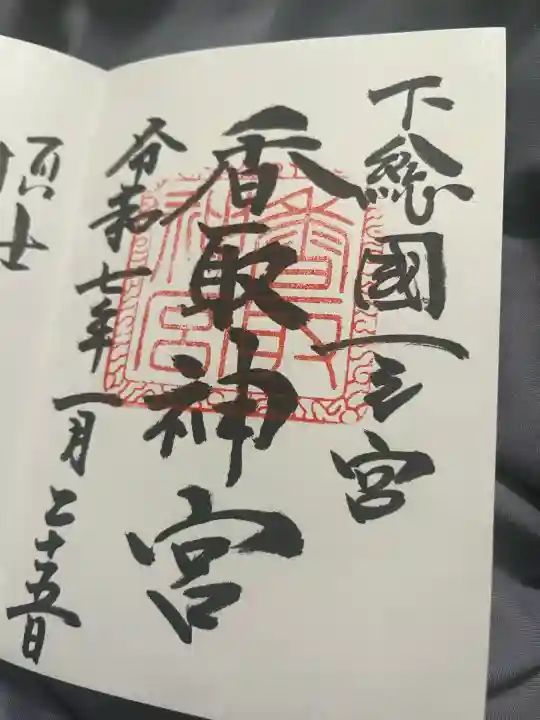 下総國一之宮
香取神宮
香取神宮
令和七年一月二十五日